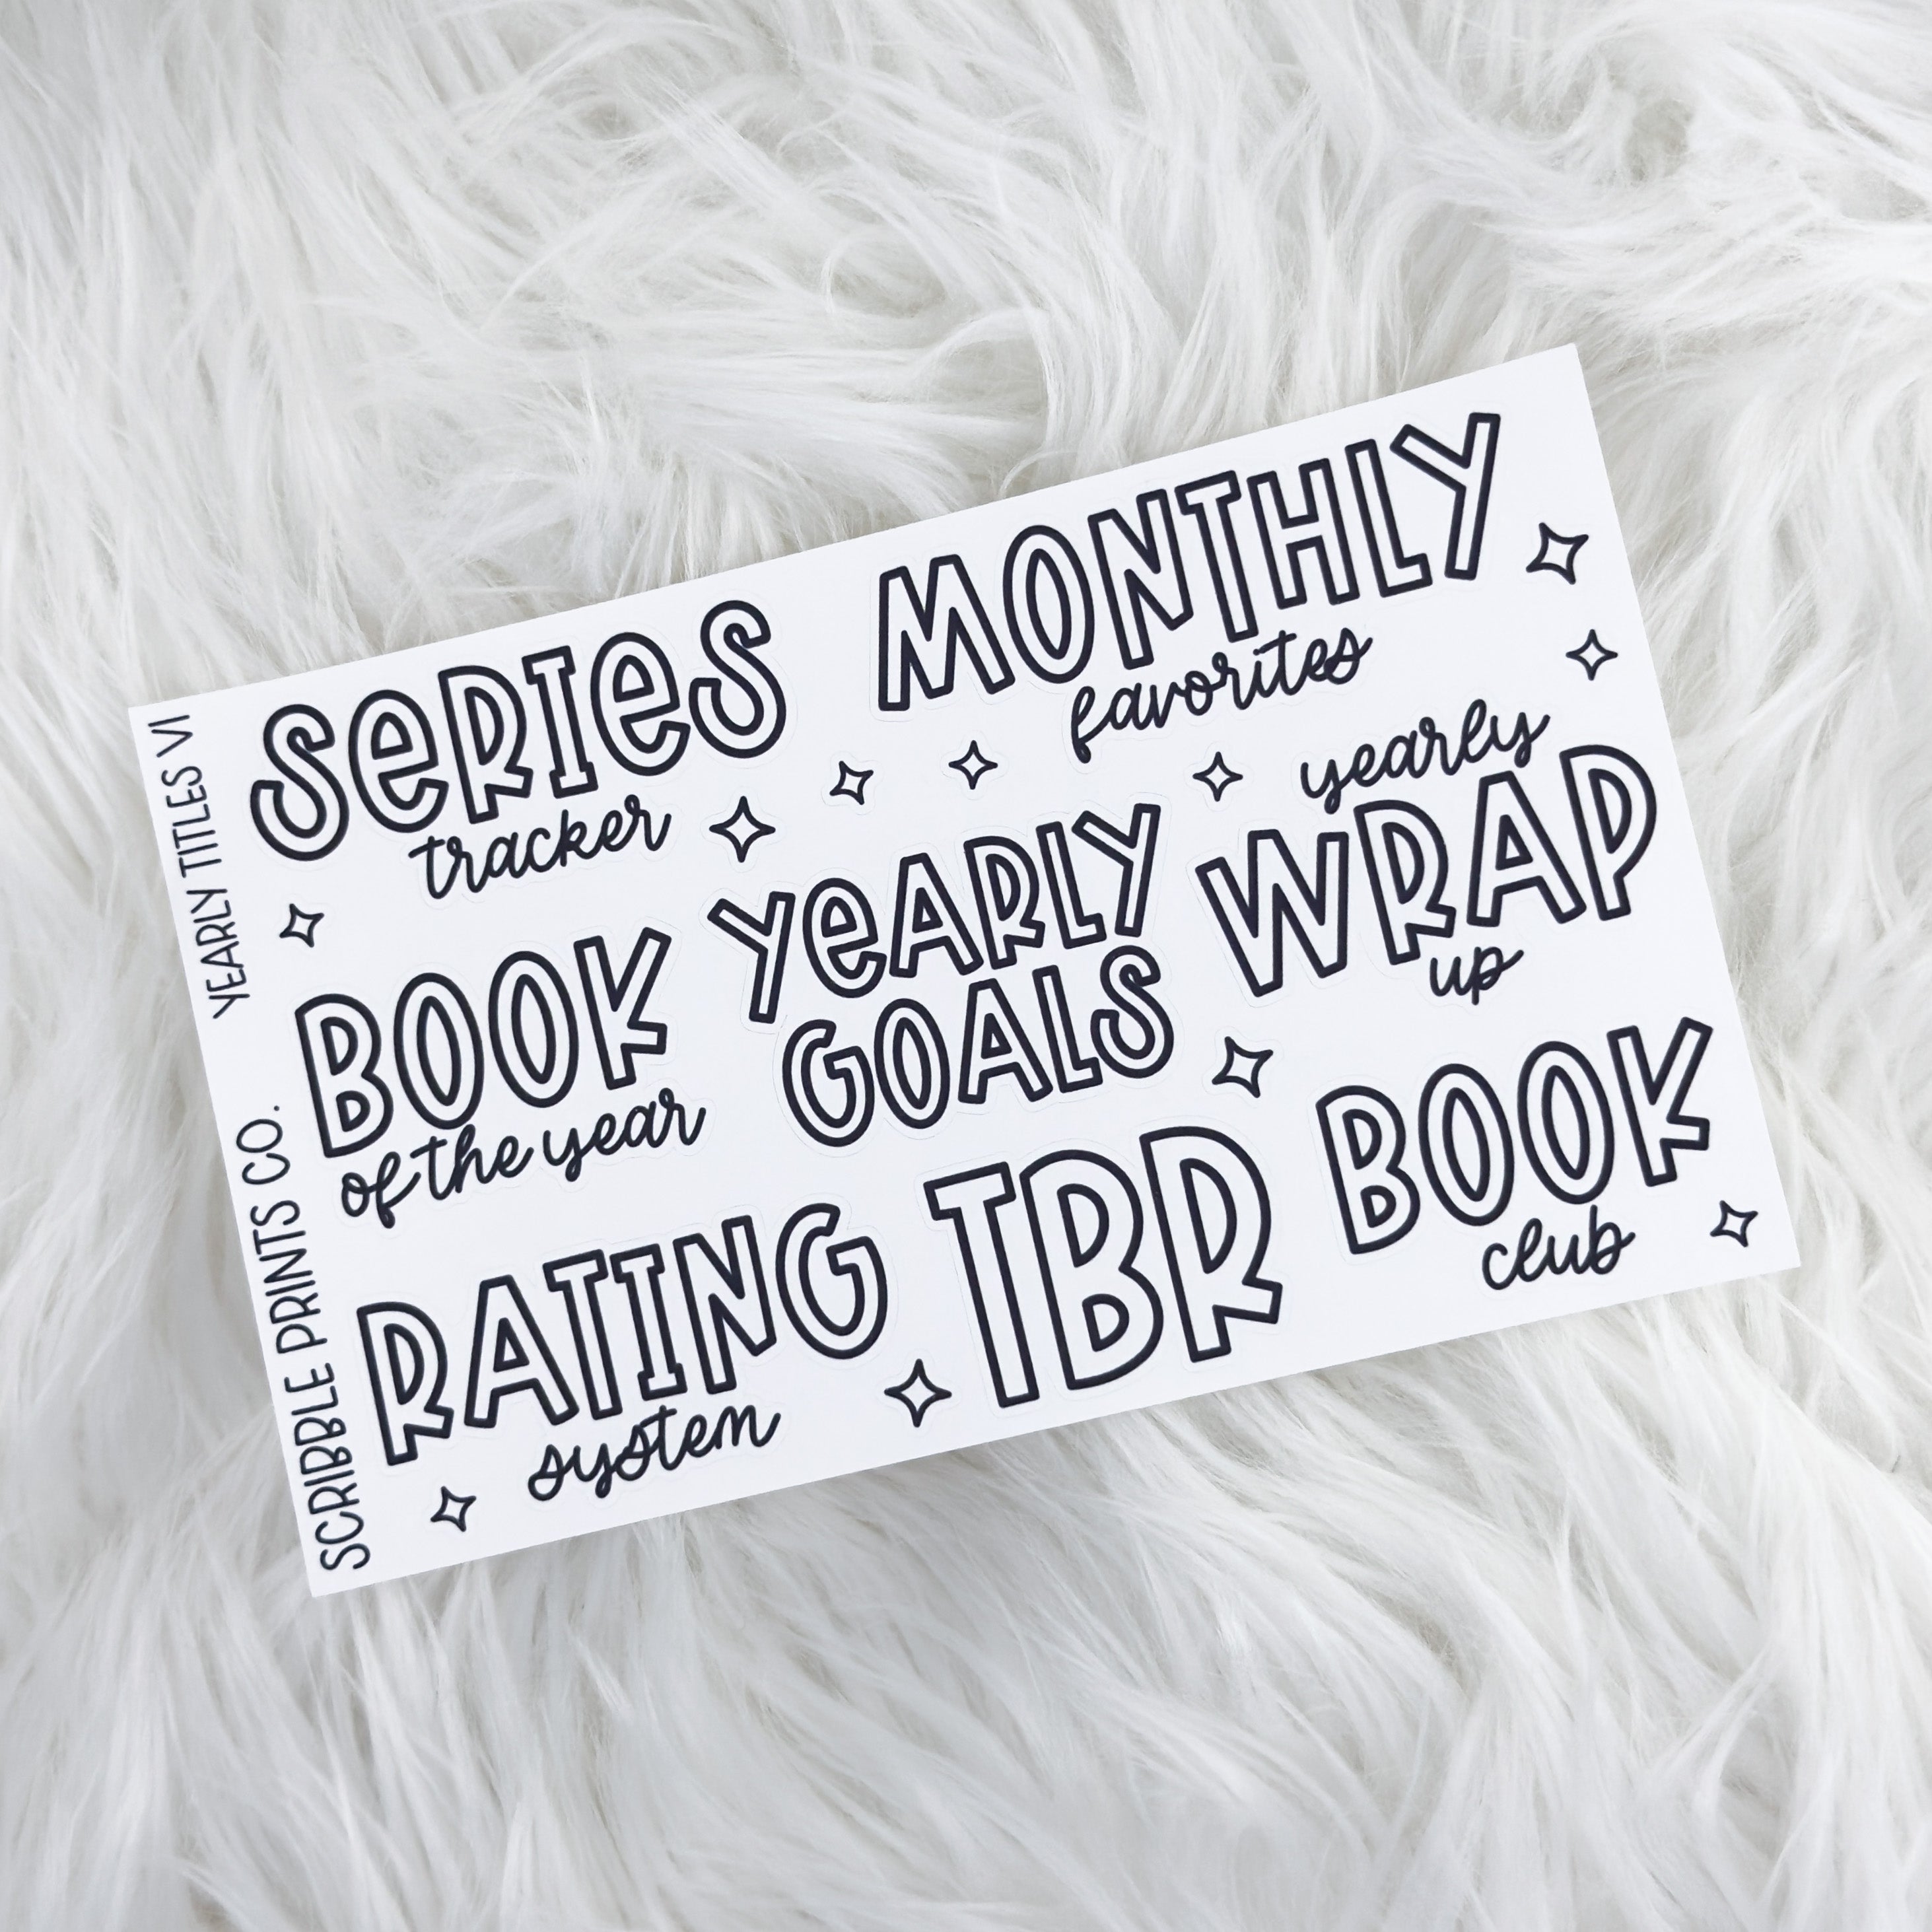 YEARLY TITLES V1
SCRIBBLE PRINTS CO.
SERIES
tracker
MONTHLY
favorites
BOOK
of the year
YEARLY
GOALS
yearly
WRAP
up
RATING
system
TBR
BOOK
club